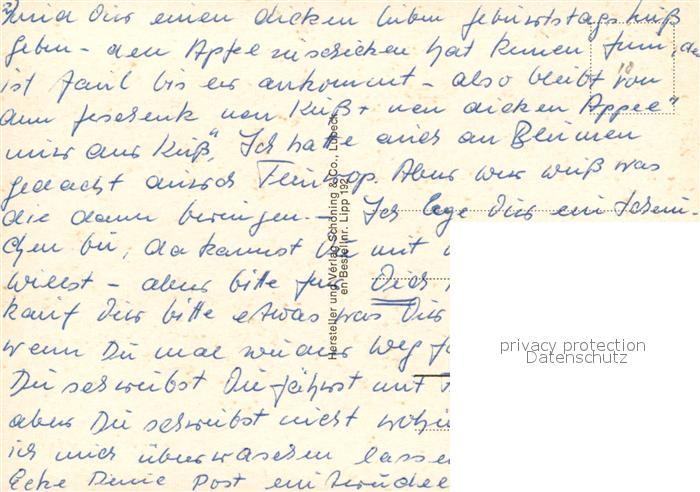 und Dir einen dicken lieben Geburtstagskuß
geben – den Apfel zu schicken hat keinen Sinn, der
ist faul bis er ankommt – also bleibt von
dem Geschenk "nen Kuß + nen dicken Appel"
nur der Kuß". Ich hatte auch an Blumen
gedacht durch Fleurop. Aber wer weiß was
die dann bringen. – Ich lege Dir ein Schein
chen bei, da kannst Du mit
willst – aber bitte für Dich
kauf Dir bitte etwas was Dir
wenn Du mal wieder weg
Du schreibst Du fährst mit
aber Du schreibst nicht
ich mich überraschen lassen
Ecke Deine Post
Hersteller und Verlag Schöning & Co., Lübeck
Bestellnr. Lipp 192
privacy protection
Datenschutz